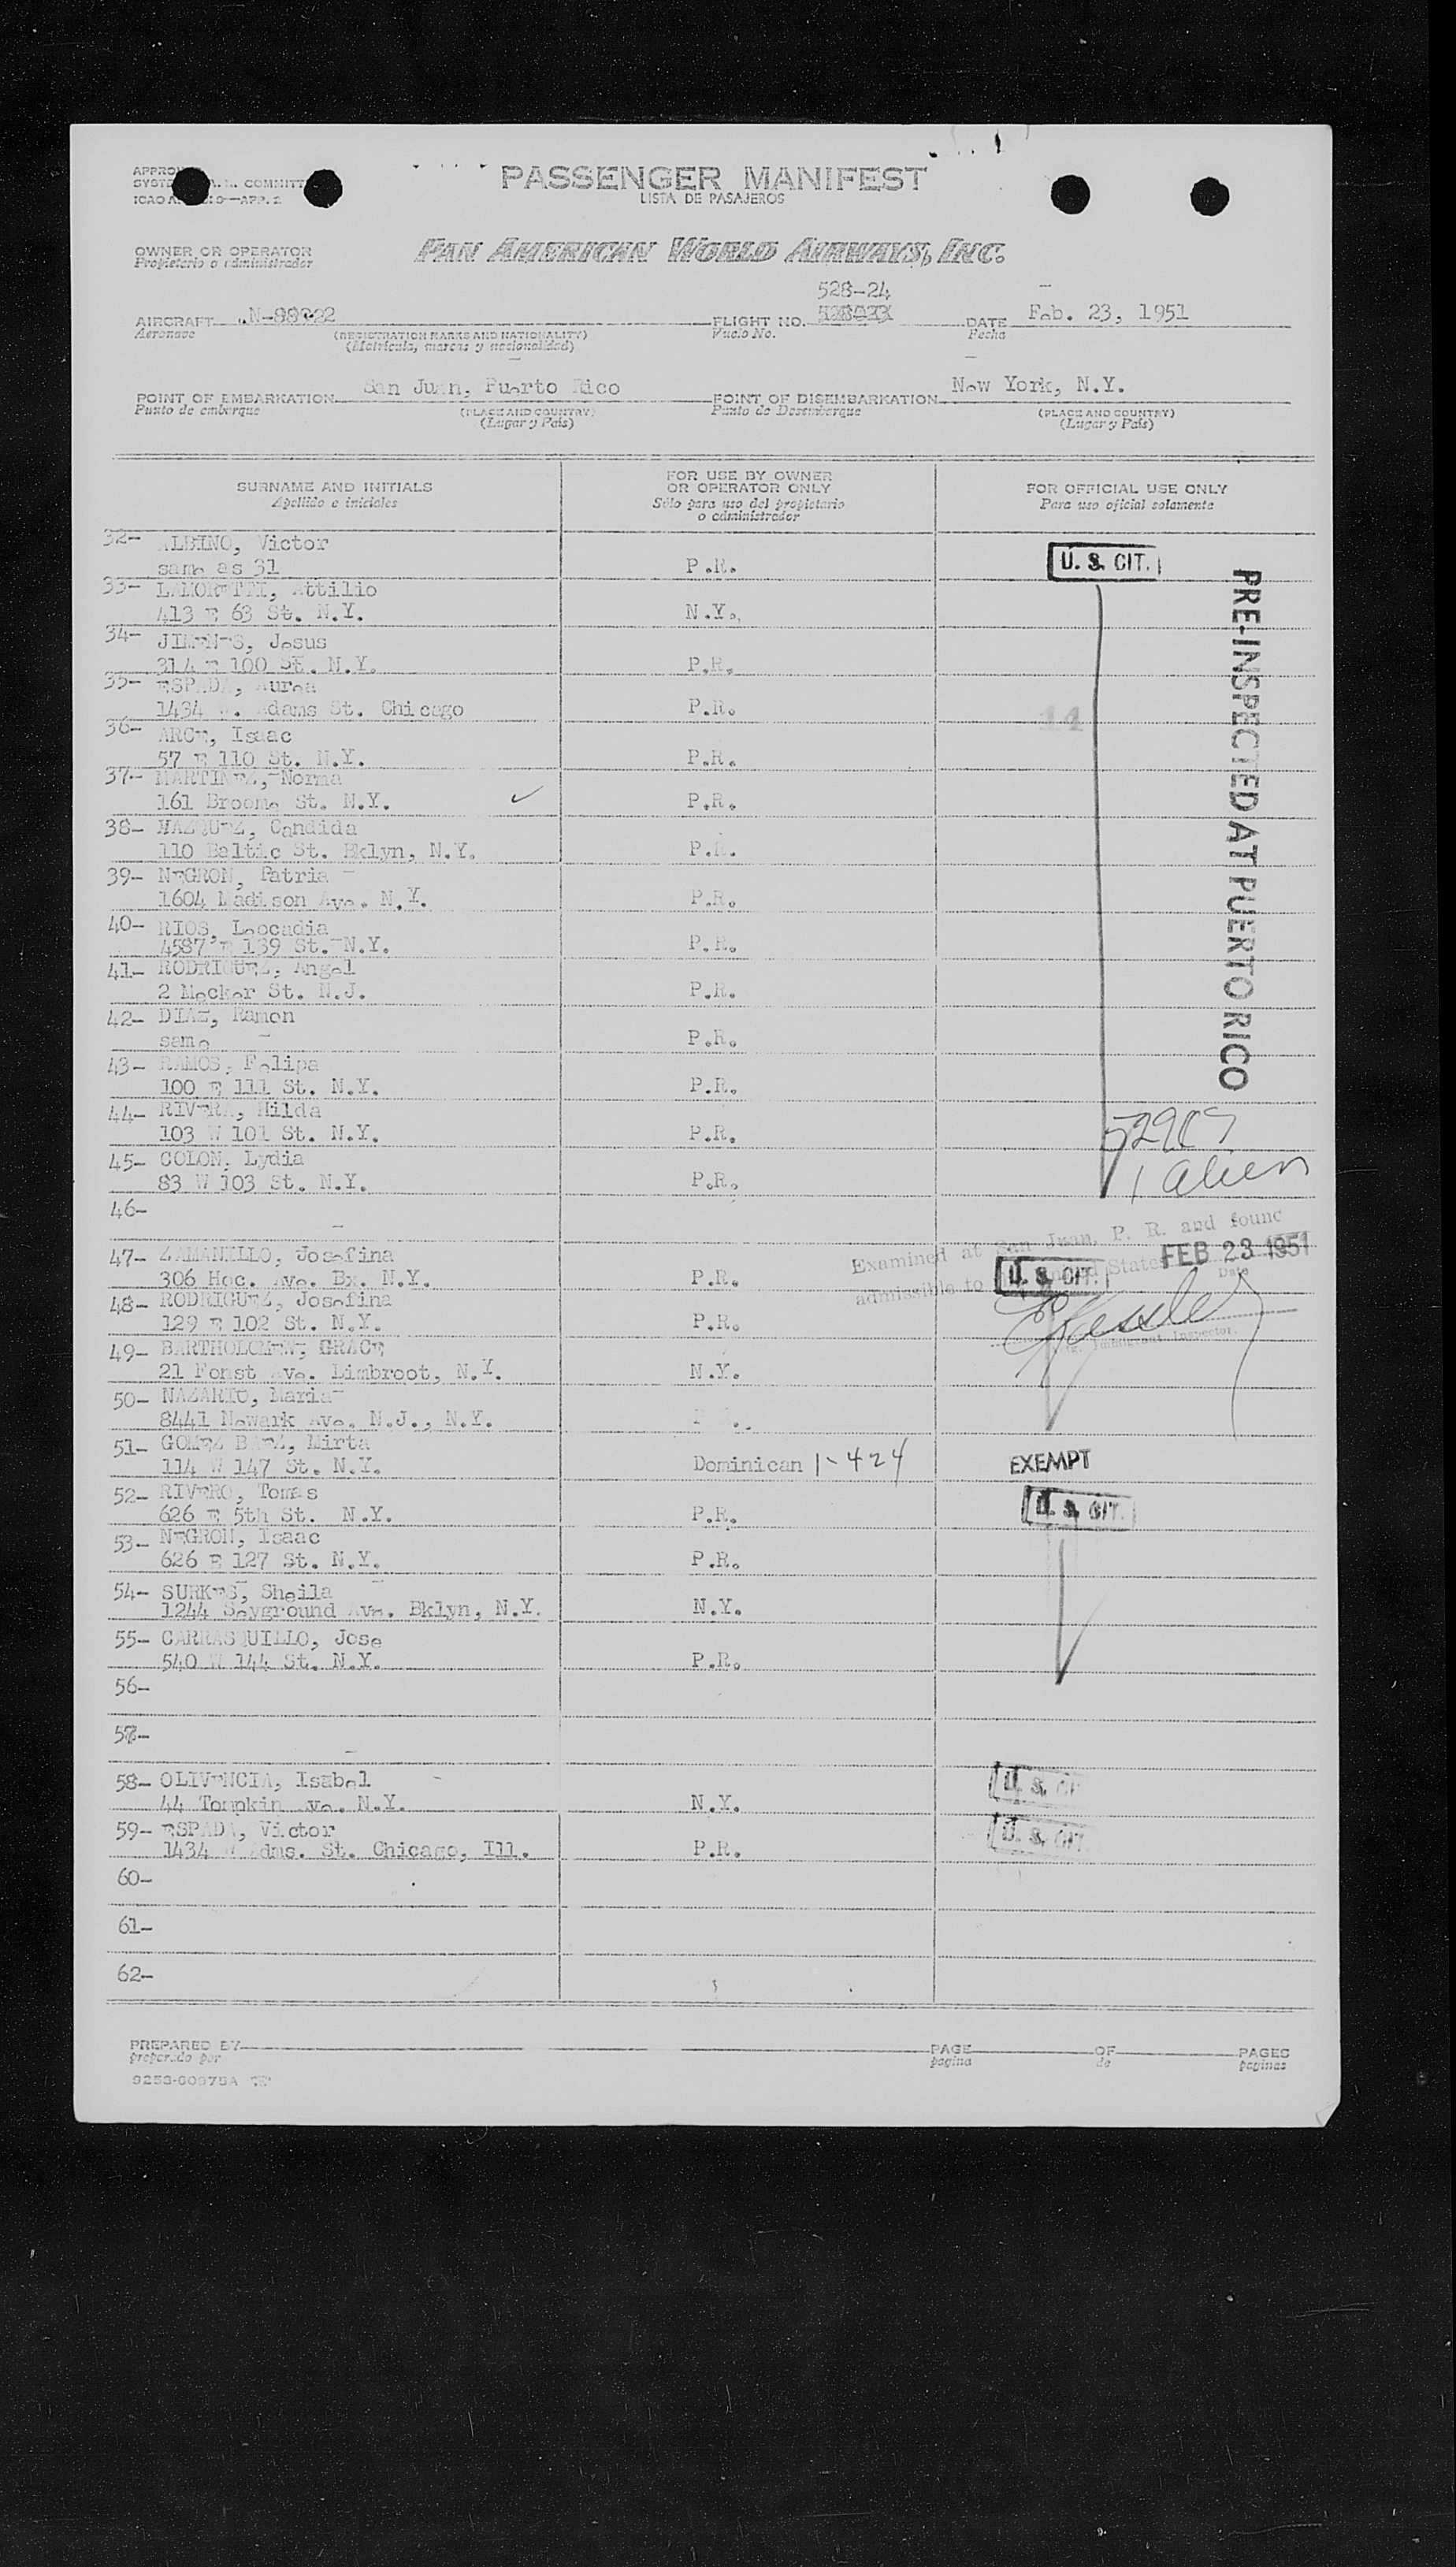 PASSENGER MANIFEST
LISTA DE PASAJEROS
OWNER OR OPERATOR
Propietario o administrador
PAN AMERICAN WORLD AIRWAYS, INC.
528-24
AIRCRAFT FLIGHT NO. DATE Feb. 23, 1951
Aeronave (REGISTRATION MARKS AND NATIONALITY) Vuelo No. Fecha
(Matrícula, marcas y nacionalidad)
POINT OF EMBARKATION San Juan, Puerto Rico POINT OF DISEMBARKATION New York, N.Y.
Punto de embarque (PLACE AND COUNTRY) Punto de Desembarque (PLACE AND COUNTRY)
(Lugar y País) (Lugar y País)
SURNAME AND INITIALS FOR USE BY OWNER OR OPERATOR ONLY FOR OFFICIAL USE ONLY
Apellido e iniciales Sólo para uso del propietario o administrador Para uso oficial solamente
32- ALBINO, Victor
same as 31 P.R. U. S. CIT.
PRE-INSPECTED AT PUERTO RICO
33- Attilio
413 E 63 St. N.Y. N.Y.
34- JIMENES, Jesus
314 E 100 St. N.Y. P.R.
35- ESPADA, Aurea
1434 W. Adams St. Chicago P.R.
14
36- ARCE, Isaac
57 E 110 St. N.Y. P.R.
37- MARTINEZ, Norma
161 Broome St. N.Y. P.R.
38- Candida
110 Baltic St. Bklyn, N.Y. P.R.
39- NEGRON, Patria
1604 Madison Ave. N.Y. P.R.
40- RIOS, Leocadia
4587 E 139 St. N.Y. P.R.
41- RODRIGUEZ, Angel
2 Mecker St. N.J. P.R.
42- DIAZ, Ramon
same P.R.
43- RAMOS, Felipa
100 E 111 St. N.Y. P.R.
44- RIVERA, Hilda
103 W 101 St. N.Y. P.R.
45- COLON, Lydia
83 W 103 St. N.Y. P.R.
1 alien
46-
Examined at San Juan, P. R. and found
admissible to United States FEB 23 1951
Date
47- ZAMANILLO, Josefina
306 Hoe. Ave. Bx. N.Y. P.R. U. S. CIT.
48- RODRIGUEZ, Josefina
129 E 102 St. N.Y. P.R.
Immigrant Inspector.
49- BARTHOLOMEW, GRACE
21 Forest Ave. N.Y. N.Y.
50- NAZARIO, Maria
8441 Newark Ave. N.J., N.Y.
51- GOMEZ BAEZ, Mirta
114 W 147 St. N.Y. Dominican 1-424 EXEMPT
52- RIVERO, Tomas
626 E 5th St. N.Y. P.R. U. S. CIT.
53- NEGRON, Isaac
626 E 127 St. N.Y. P.R.
54- SURKES, Sheila
1244 Ave. Bklyn, N.Y. N.Y.
55- CARRASQUILLO, Jose
540 W 144 St. N.Y. P.R.
56-
57-
58- OLIVENCIA, Isabel U. S. CIT.
44 Tompkin Ave. N.Y. N.Y.
59- ESPADA, Victor U. S. CIT.
1434 W Adms. St. Chicago, Ill. P.R.
60-
61-
62-
PREPARED BY PAGE OF PAGES
preparado por pagina de paginas